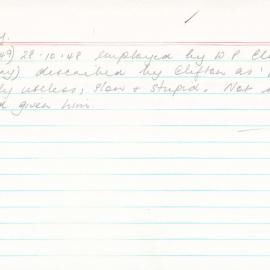 28.10.48 employed by D P
described by Clifton as
useless, slow & stupid. Not
given him